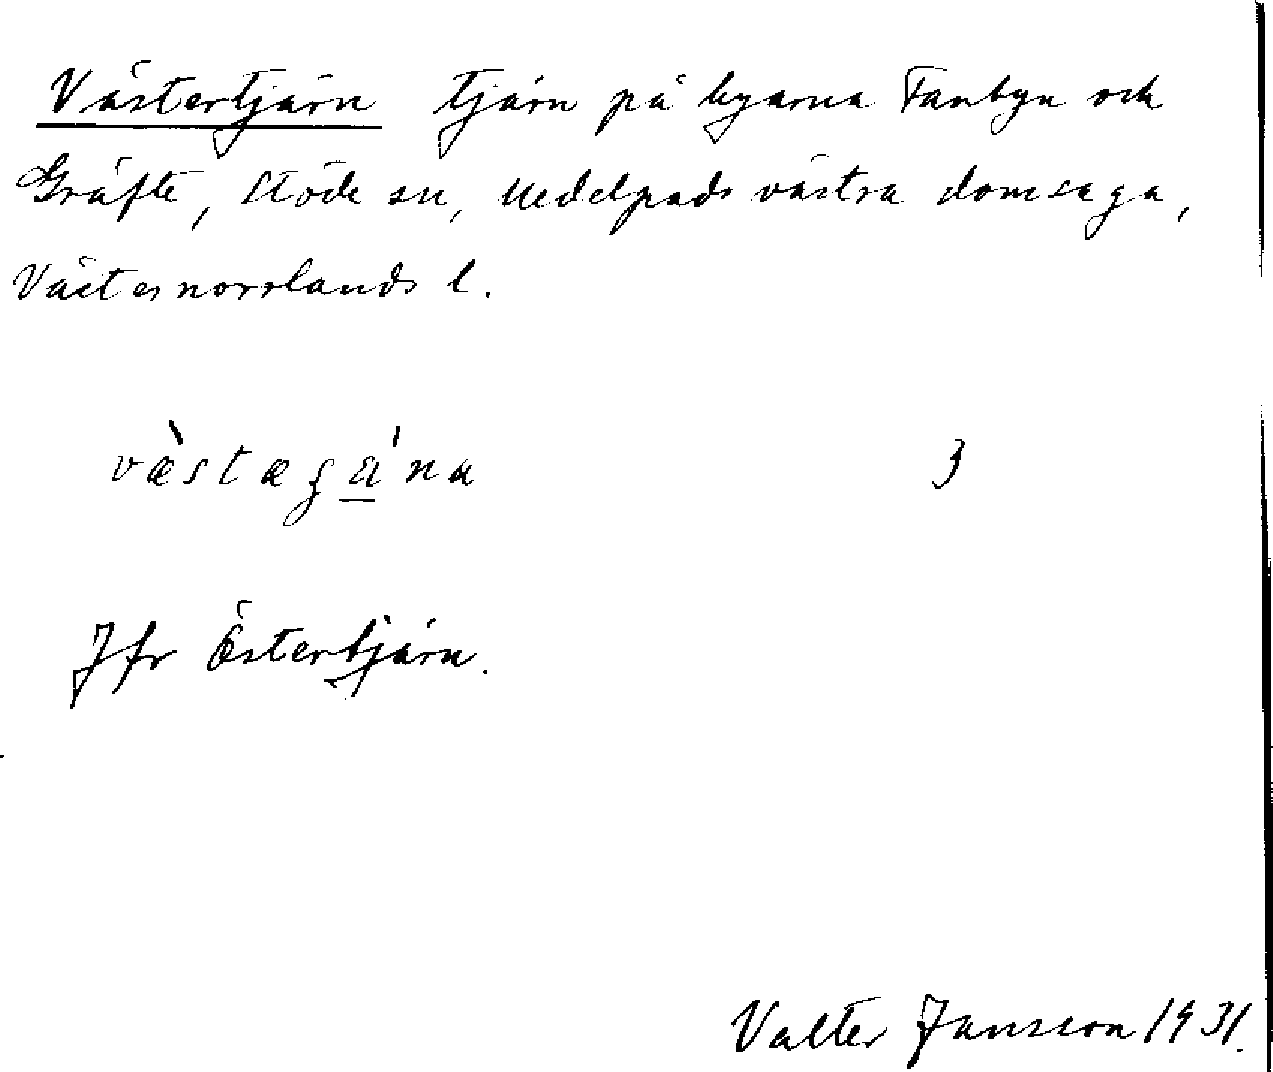 Västertjärn tjärn på byarna Fanbyn och
Gräfte, Stöde sn, Medelpads västra domsaga,
Västernorrlands l.
3
Jfr Östertjärn.
Valter Jansson 1931.